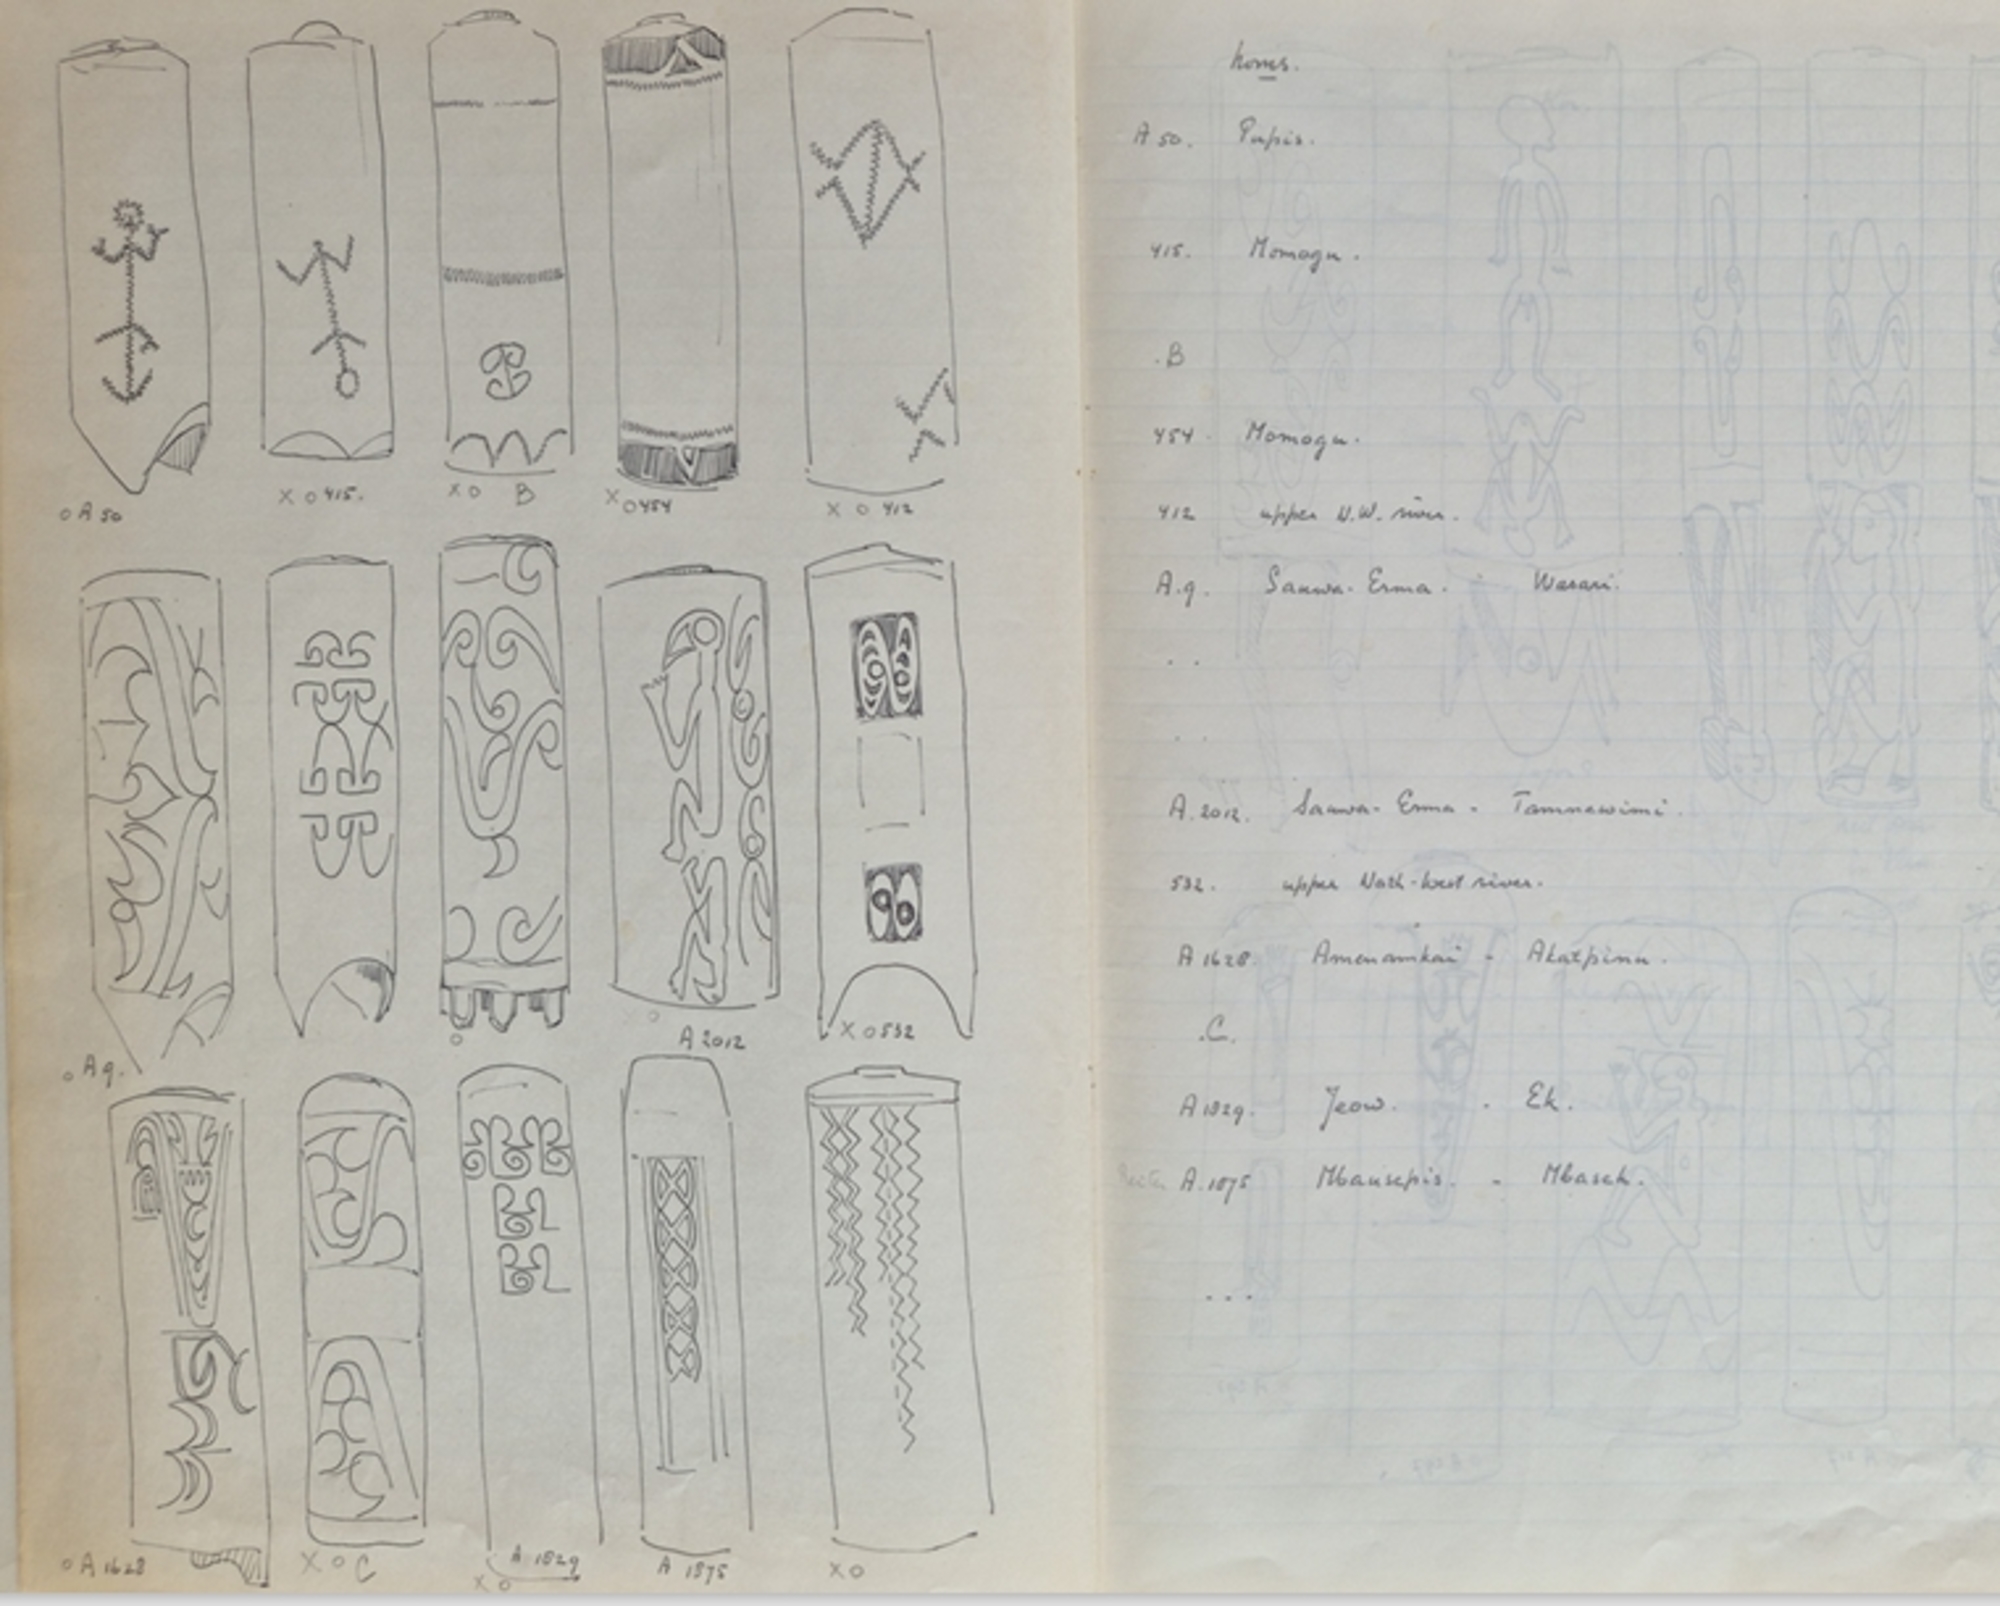 o A 50
X O 415.
X O B
X O 454
X O 412
o A 9.
o
o A 2012
X O 532
o A 1628
X O C
A 1829
X O
A 1875
X O
A 50. Pupis.
415. Momogu.
.B
454. Momogu.
412 upper N.W. river.
A.9. Sauwa-Erma. - Warari.
. .
. .
A.2012. Sauwa-Erma - Tamnewimi.
532. upper North-West river.
A 1628. Amenamkai - Akatpinu.
.C.
A 1829. Jeow. - Ek.
A.1875 Mbausepis. - Mbaseh.
. . .